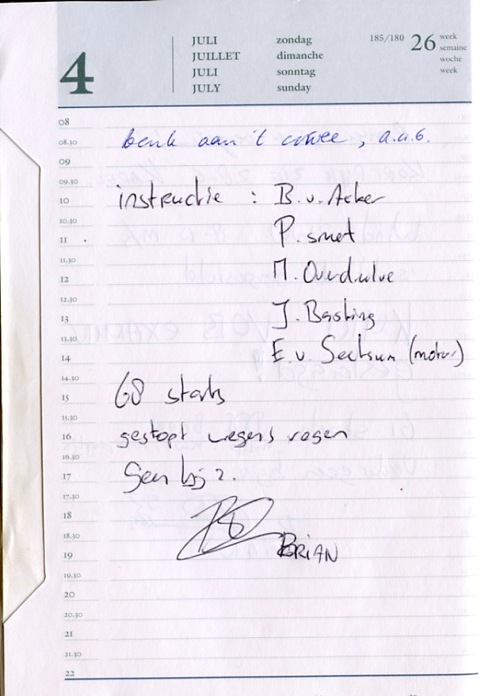 4
JULI zondag 185/180 26 week
JUILLET dimanche semaine
JULI sonntag woche
JULY sunday week
08
08.30 aan 't , a.u.b.
09
09.30
10 instructie : B. v. Acker
10.30
11 P. smet
11.30
12 M. Overdulve
12.30
13 J. Basting
13.30
14 E. v. (motor)
14.30
15 68 starts
15.30
16 gestopt wegens regen
16.30
17 Geen bij 2.
17.30
18
18.30
19 BRIAN
19.30
20
20.30
21
21.30
22